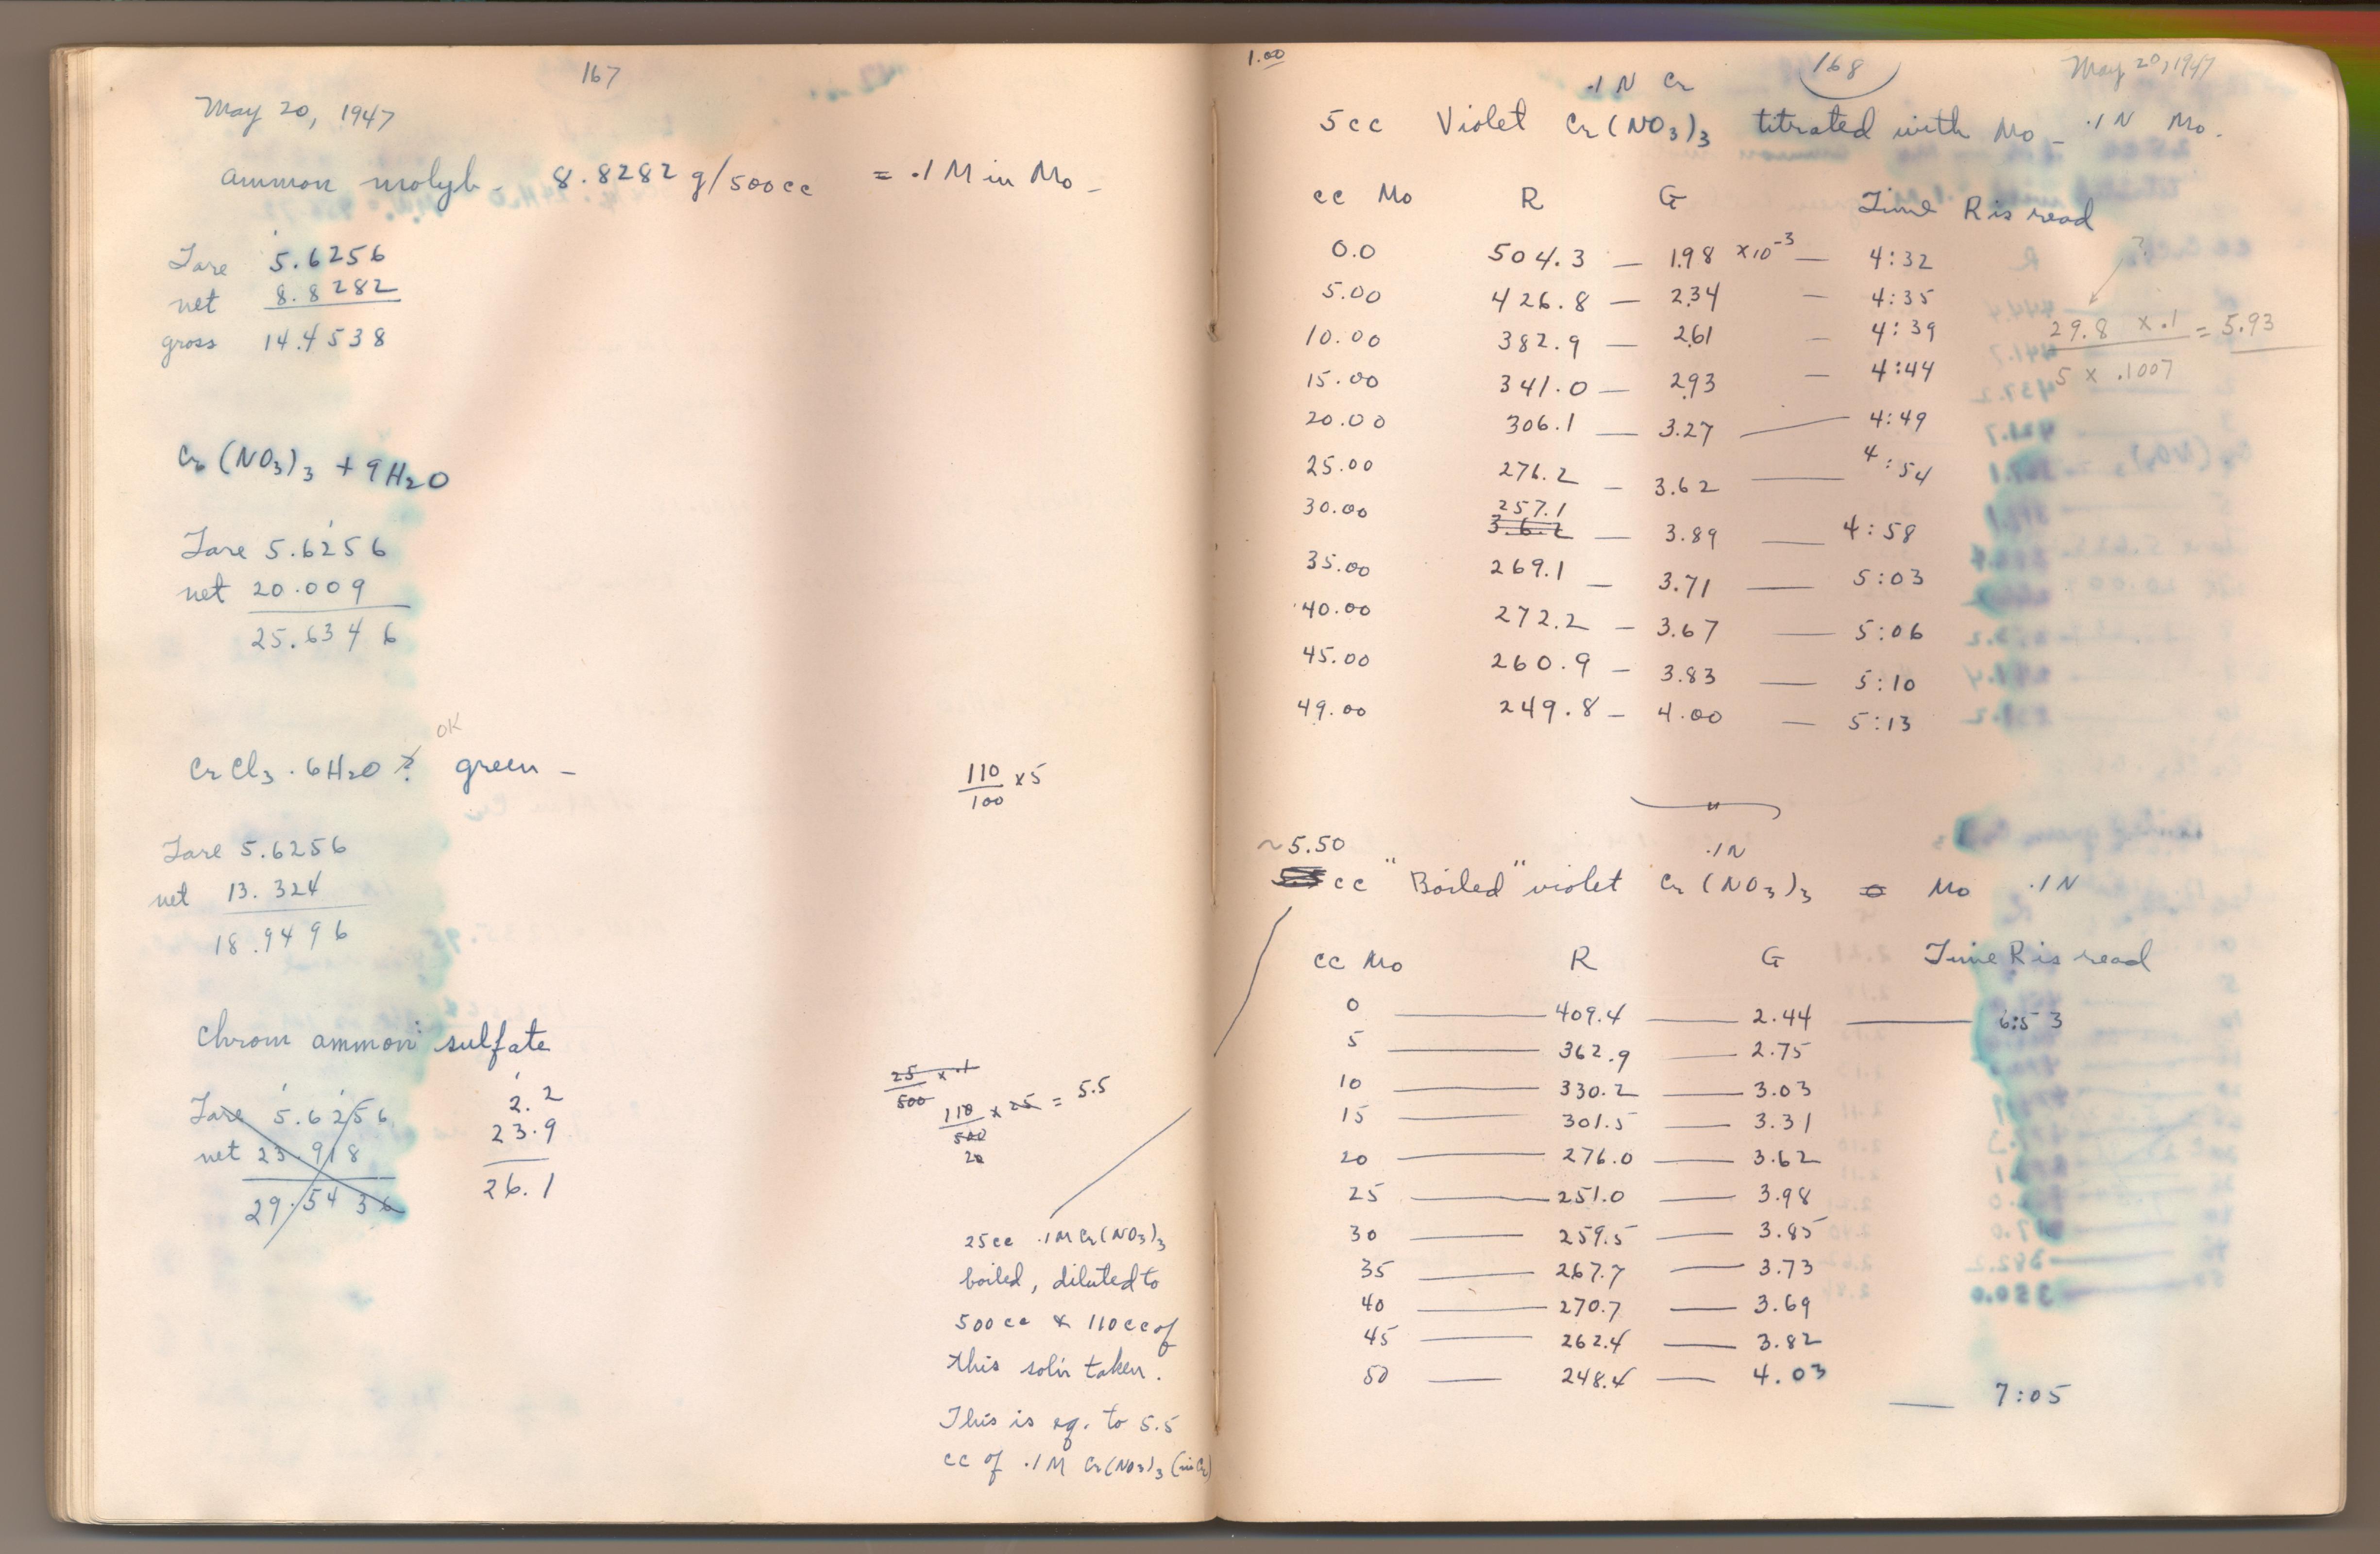 167
May 20, 1947
ammon molyb - 8.8282 g/500cc = .1 M in Mo -
Tare 5.6256
net 8.8282
gross 14.4538
Cr(NO3)3 + 9H2O
Tare 5.6256
net 20.009
25.6346
OK
CrCl3 . 6H2O ? green -
Tare 5.6256
net 13.324
18.9496
110/100 x 5
Chrom ammon sulfate
Tare 5.6256
net 23.918
29.5436
2.2
23.9
26.1
25/500 x .1
110/500 x 25 = 5.5
20
25cc .1M Cr(NO3)3
boiled, diluted to
500cc & 110cc of
this soln taken.
This is eq. to 5.5
cc of .1M Cr(NO3)3 (in Cr)
1.00
168
May 20, 1947
.1 N Cr
5cc Violet Cr(NO3)3 titrated with Mo - .1N Mo.
cc Mo R G Time R is read
0.0 504.3 — 1.98 x10-3 — 4:32
5.00 426.8 — 2.34 — 4:35
10.00 382.9 — 2.61 — 4:39
15.00 341.0 — 2.93 — 4:44
20.00 306.1 — 3.27 — 4:49
25.00 276.2 — 3.62 — 4:54
30.00 257.1 — 3.89 — 4:58
36.2
35.00 269.1 — 3.71 — 5:03
40.00 272.2 — 3.67 — 5:06
45.00 260.9 — 3.83 — 5:10
49.00 249.8 — 4.00 — 5:13
?
29.8 x .1 = 5.93
5 x .1007
~5.50
.1N
cc "Boiled" violet Cr(NO3)3 Mo .1N
cc Mo R G Time R is read
0 — 409.4 — 2.44 — 6:53
5 — 362.9 — 2.75
10 — 330.2 — 3.03
15 — 301.5 — 3.31
20 — 276.0 — 3.62
25 — 251.0 — 3.98
30 — 259.5 — 3.85
35 — 267.7 — 3.73
40 — 270.7 — 3.69
45 — 262.4 — 3.82
50 — 248.4 — 4.03
— 7:05